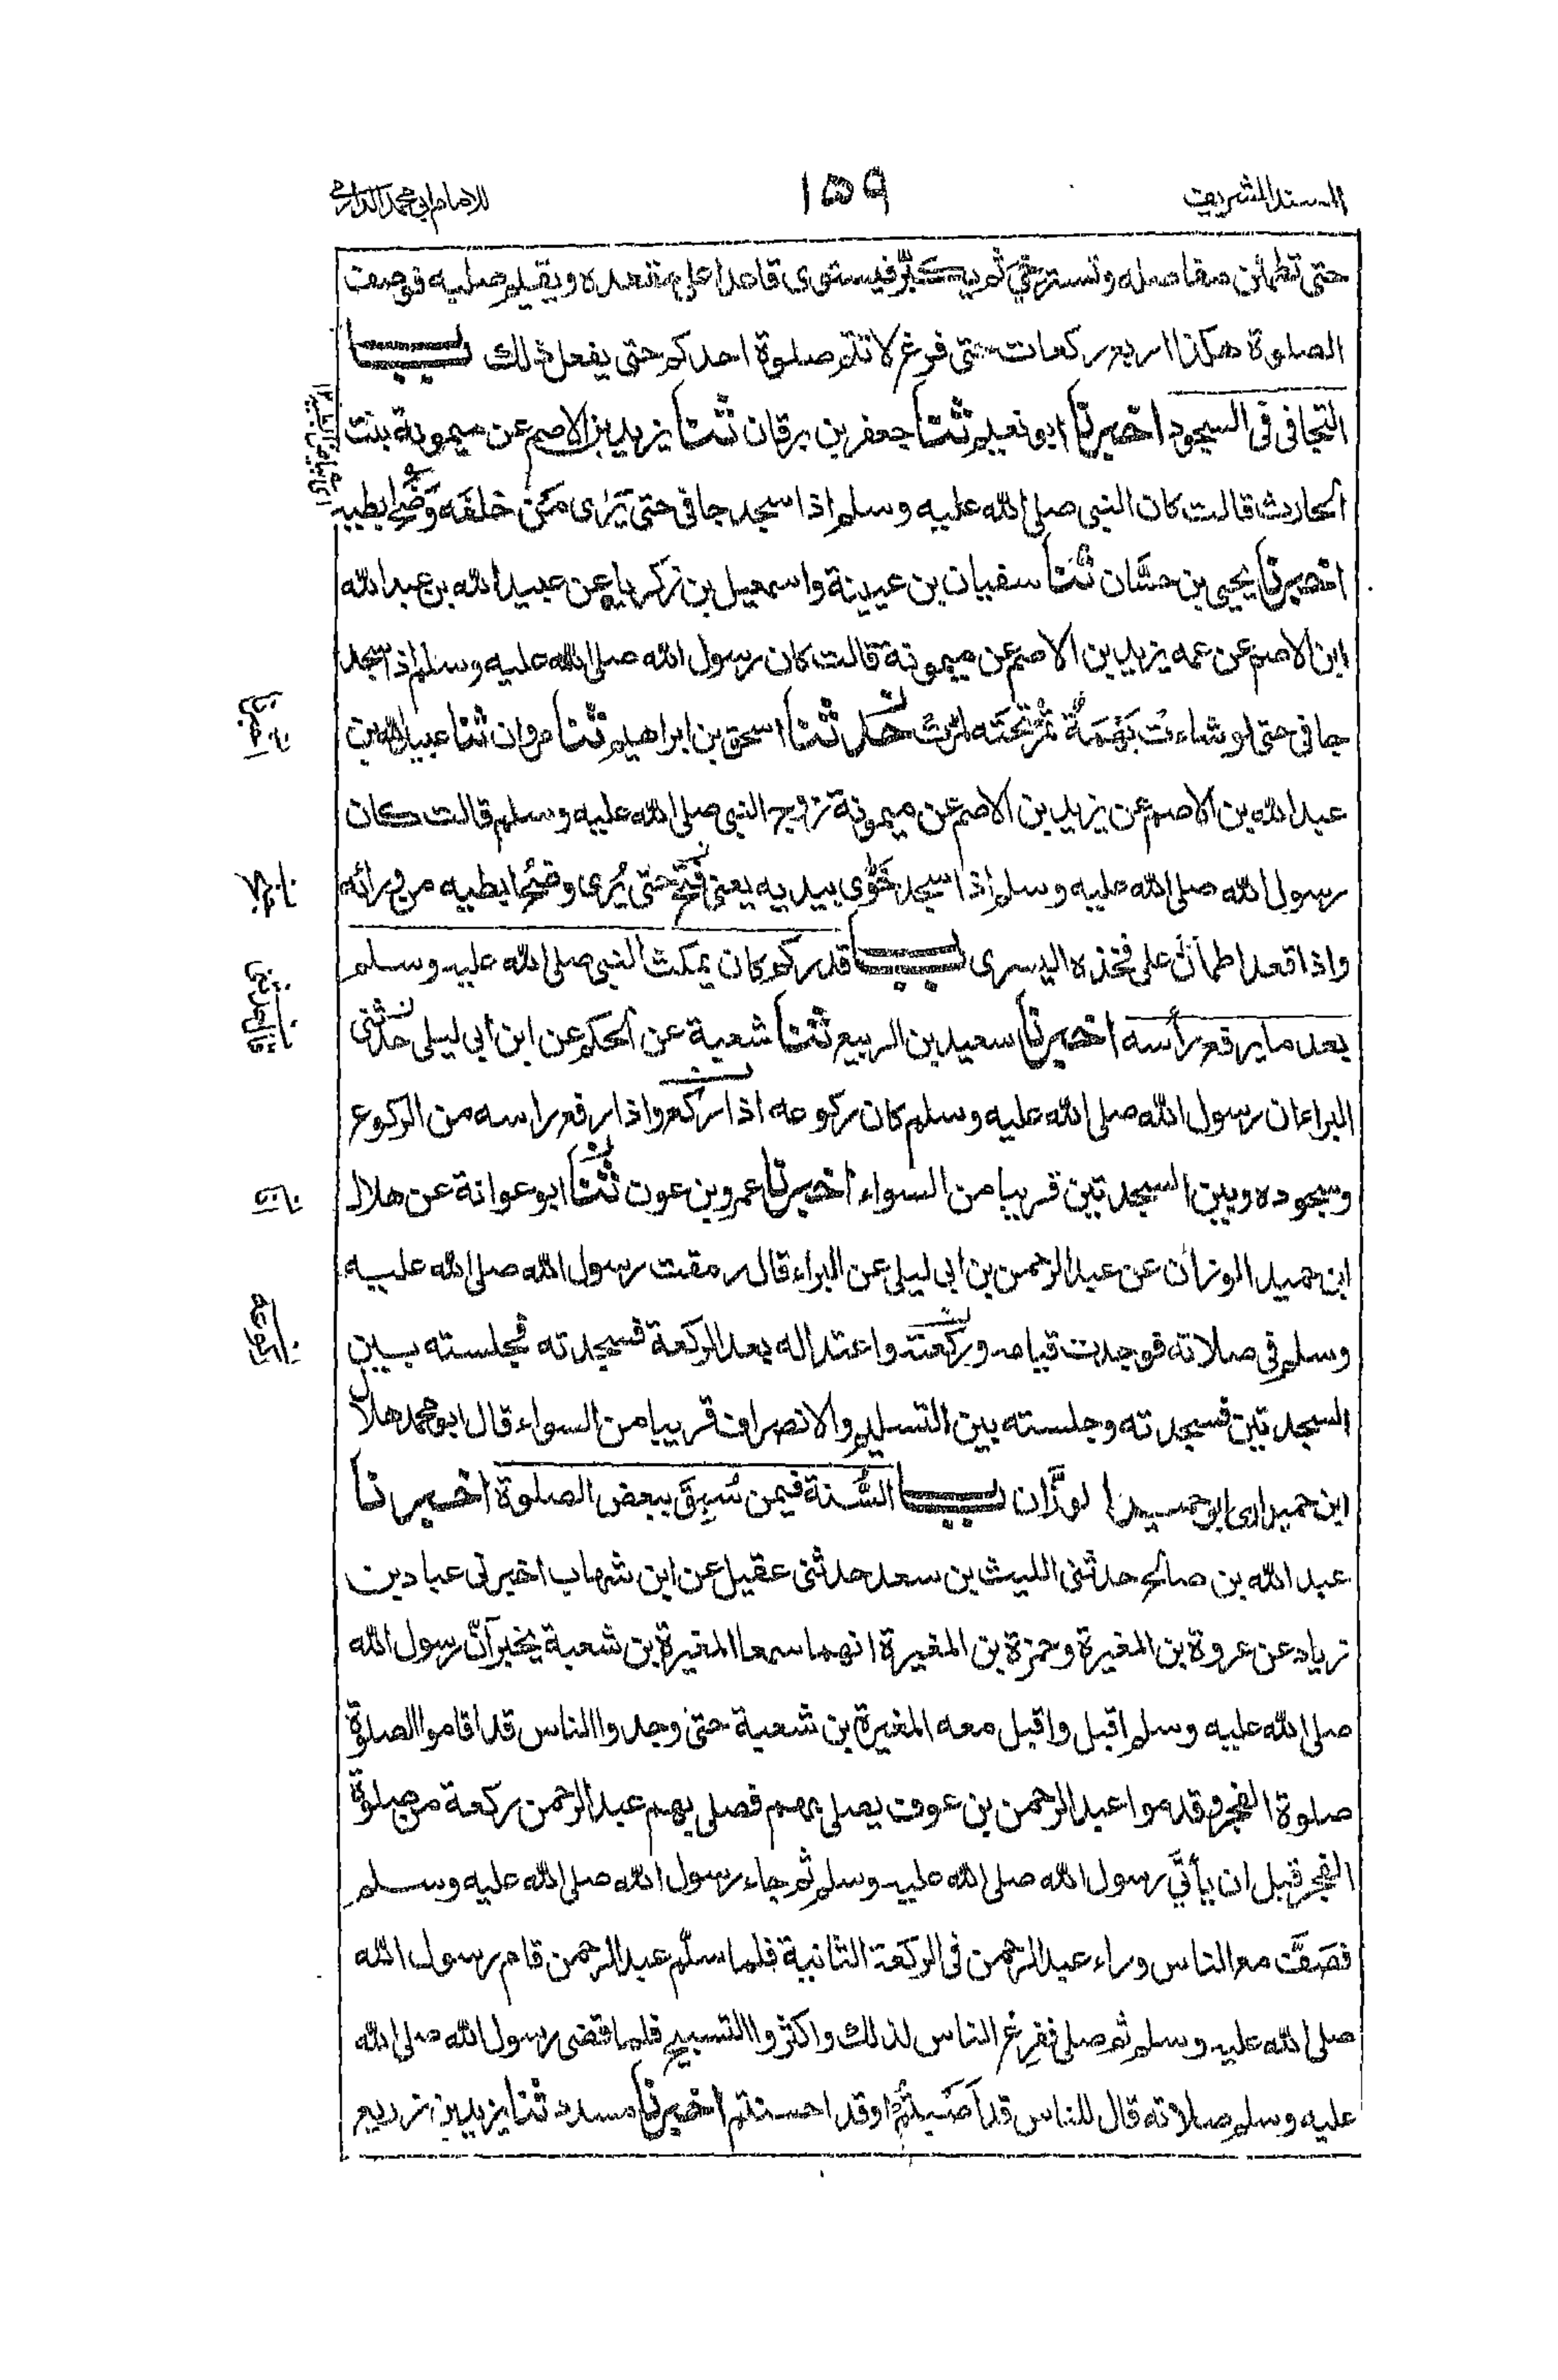 المسند الشريف
١٥٩
للامام ابي محمد الدارمي
حتى تطمئن مفاصله وتسترخي ثم يكبّر فيستوى قاعدا على مقعده ويقيم صلبه فوصف
الصلوة هكذا اربع ركعات حتى فرغ لا تتم صلوة احدكم حتى يفعل ذلك باب
التجافى فى السجود اخبرنا ابو نعيم ثنا جعفر بن برقان ثنا يزيد بن الاصم عن ميمونة بنت
الحارث قالت كان النبى صلى الله عليه وسلم اذا سجد جافى حتى يَرٰى مَن خلفَه وَضَحَ ابطيه
اخبرنا يحيى بن حسّان ثنا سفيان بن عيينة واسمعيل بن زكرياء عن عبيد الله بن عبد الله
ابن الاصم عن عمه يزيد بن الاصم عن ميمونة قالت كان رسول الله صلى الله عليه وسلم اذا سجد
جافى حتى لو شاءت بَهْمَةٌ تمُرّ تحته لمرّت حدثنا اسحق بن ابراهيم ثنا مروان ثنا عبيد الله بن
عبد الله بن الاصم عن يزيد بن الاصم عن ميمونة زوج النبى صلى الله عليه وسلم قالت كان
رسول الله صلى الله عليه وسلم اذا سجد خَوّى بيديه يعنى فتح حتى يُرى وضحُ ابطيه من ورائه
واذا قعد اطمأنّ على فخذه اليسرى باب قدر كم كان يمكث النبى صلى الله عليه وسلم
بعد ما يرفع رأسه اخبرنا سعيد بن الربيع ثنا شعبة عن الحكم عن ابن ابى ليلى حدثنى
البراء ان رسول الله صلى الله عليه وسلم كان ركوعه اذا ركع واذا رفع راسه من الركوع
وسجوده وبين السجدتين قريبا من السواء اخبرنا عمرو بن عون ثنا ابو عوانة عن هلال
ابن حميد الوزان عن عبد الرحمن بن ابى ليلى عن البراء قال رمقت رسول الله صلى الله عليه
وسلم فى صلاته فوجدت قيامه وركعته واعتداله بعد الركعة فسجدته فجلسته بين
السجدتين فسجدته وجلسته بين التسليم والانصراف قريبا من السواء قال ابو محمد هلال
ابن حميد ارى ابو حميد الوزّان باب السُّنة فيمن سُبِقَ ببعض الصلوة اخبرنا
عبد الله بن صالح حدثنى الليث بن سعد حدثنى عقيل عن ابن شهاب اخبرنى عباد بن
زياد عن عروة بن المغيرة وحمزة بن المغيرة انهما سمعا المغيرة بن شعبة يخبر اَنّ رسول الله
صلى الله عليه وسلم اقبل واقبل معه المغيرة بن شعبة حتى وجدوا الناس قد اقاموا الصلوة
صلوة الفجر وقدموا عبد الرحمن بن عوف يصلى بهم فصلى بهم عبد الرحمن ركعة من صلوة
الفجر قبل ان يأتي رسول الله صلى الله عليه وسلم ثم جاء رسول الله صلى الله عليه وسلم
فصَفَّ مع الناس وراء عبد الرحمن فى الركعة الثانية فلما سلّم عبد الرحمن قام رسول الله
صلى الله عليه وسلم ثم صلى ففرغ الناس لذلك واكثروا التسبيح فلما قضى رسول الله صلى الله
عليه وسلم صلاته قال للناس قد اَصَبتُم او قد احسنتم اخبرنا مسدد ثنا يزيد بن زريع